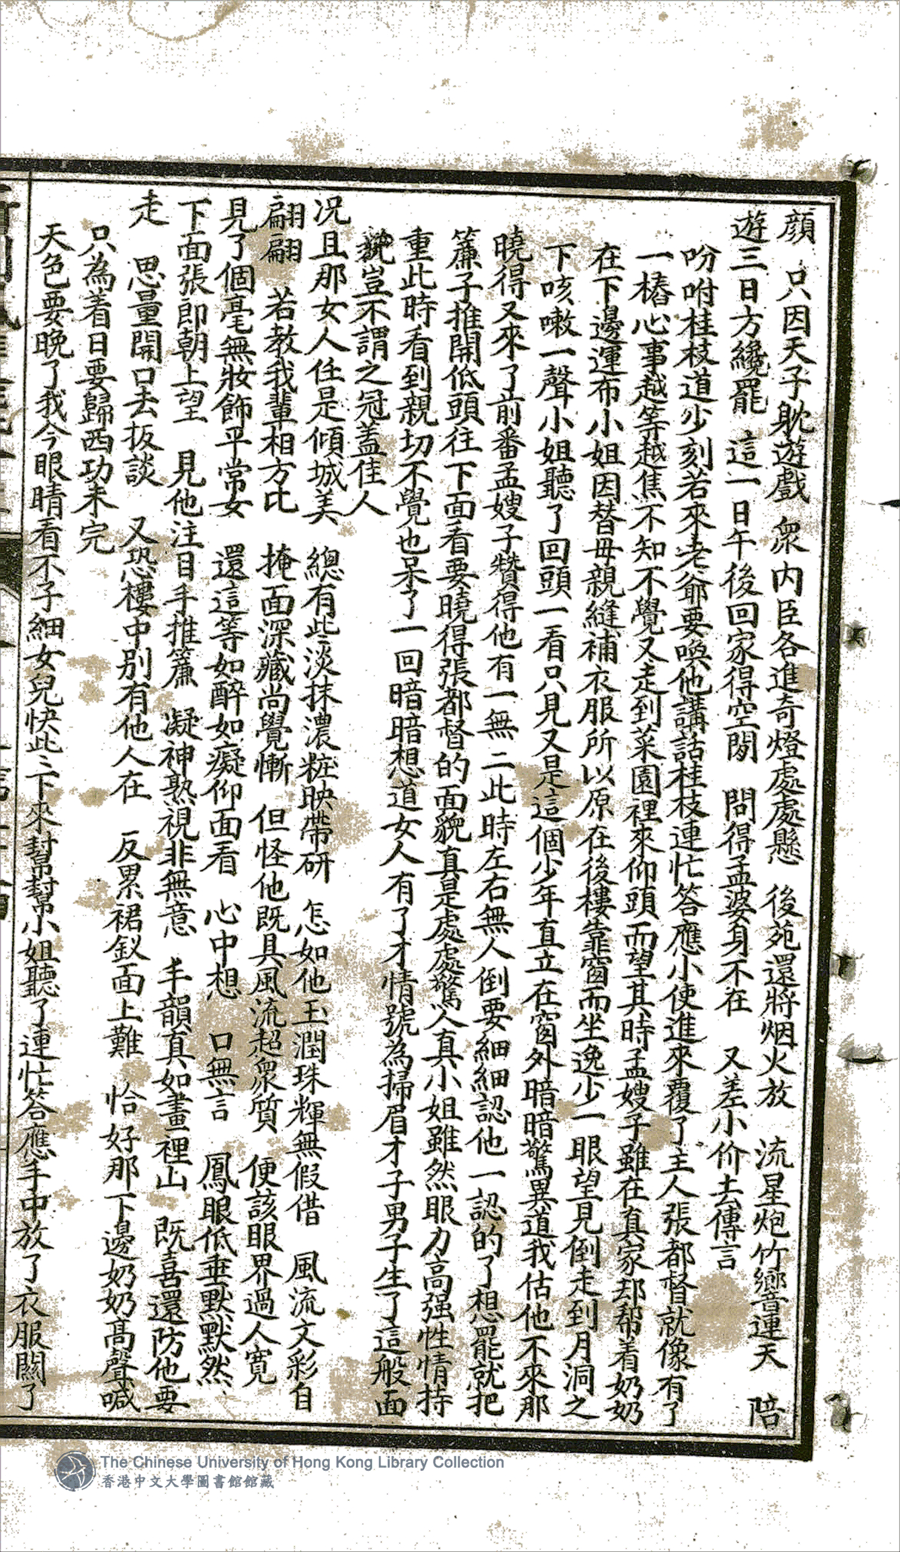 顔　只因天子耽遊戲　衆内臣各進奇燈處處懸　後苑還將烟火放　流星炮竹響連天　陪
遊三日方纔罷　這一日午後回家得空閒　問得孟婆身不在　又差小价去傳言
吩咐桂枝道少刻若來老爺要喚他講話桂枝連忙答應小使進來覆了主人張都督就像有了
一樁心事越等越焦不知不覺又走到菜園裡來仰頭而望其時孟嫂子雖在真家却帮着奶奶
在下邊運布小姐因替毋親縫補衣服所以原在後樓靠窗而坐逸少一眼望見倒走到月洞之
下咳嗽一聲小姐聽了回頭一看只見又是這個少年直立在窗外暗暗驚異道我估他不來那
曉得又來了前番孟嫂子贊得他有一無二此時左右無人倒要細細認他一認的了想罷就把
簾子推開低頭往下面看要曉得張都督的面貌真是處處驚人真小姐雖然眼力高强性情持
重此時看到親切不覺也呆了一回暗暗想道女人有了才情號為掃眉才子男子生了這般面
貌豈不謂之冠蓋佳人
况且那女人任是傾城美　總有此淡抹濃粧映帶研　怎如他玉潤珠輝無假借　風流文彩自
翩翩　若教我輩相方比　掩面深藏尚覺慚　但怪他既具風流超衆質　便該眼界過人寬
見了個毫無妝飾平常女　還這等如醉如癡仰面看　心中想　口無言　鳳眼低垂默默然
下面張郎朝上望　見他注目手推簾　凝神熟視非無意　丰韻真如畫裡山　既喜還防他要
走　思量開口去扳談　又恐樓中别有他人在　反累裙釵面上難　恰好那下邊奶奶高聲喊
只為着日要歸西功未完
天色要晚了我今眼睛看不子細女兒快此二下來幫幫小姐聽了連忙答應手中放了衣服關了
The Chinese University of Hong Kong Library Collection
香港中文大學圖書館館藏